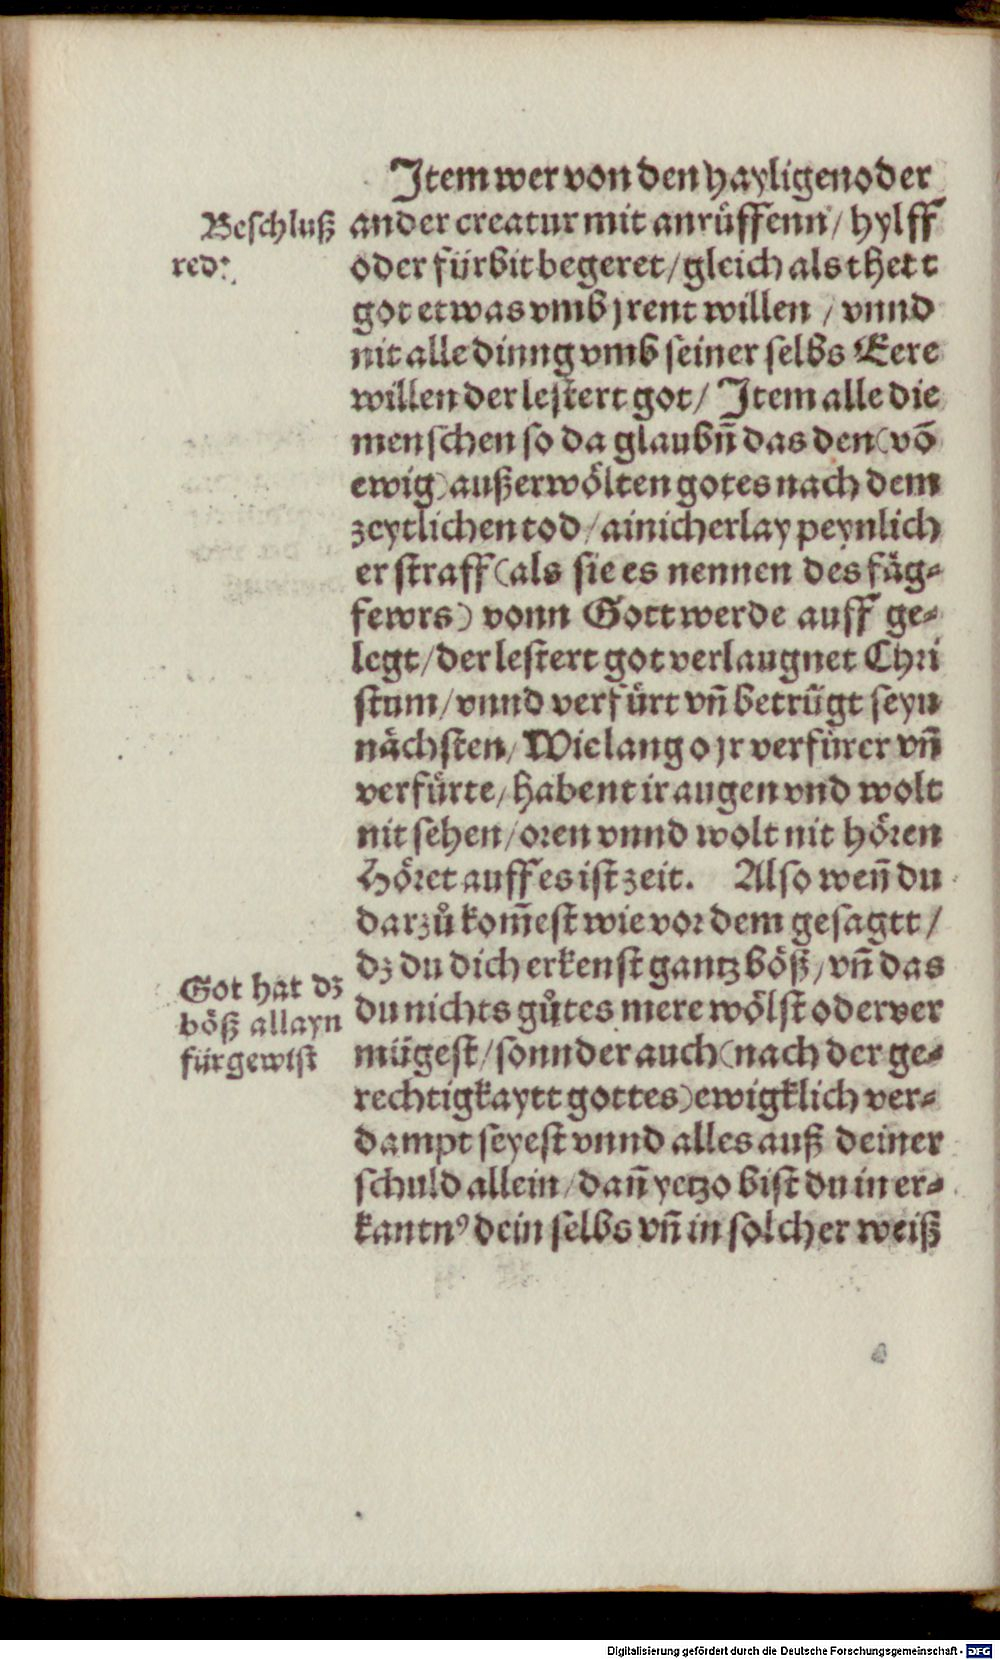 Item wer von den hayligen oder
Beschluß
red:
ander creatur mit anrüffenn / hylff
oder fürbit begeret / gleich als thett
got etwas vmb jrent willen / vnnd
nit alle dinng vmb seiner selbs Eere
willen der lestert got / Item alle die
menschen so da glaubn̄ das den (vō
ewig) außerwölten gotes nach dem
zeytlichen tod / ainicherlay peynlich
er straff (als sie es nennen des fäg-
fewrs) vonn Gott werde auff ge-
legt / der lestert got verlaugnet Chri
stum / vnnd verfürt vn̄ betrügt seyn
nächsten / Wie lang o jr verfürer vn̄
verfürte / habent ir augen vnd wolt
nit sehen / oren vnnd wolt nit hören
Höret auff es ist zeit. Also wen̄ du
darzů kom̄est wie vor dem gesagtt /
dz du dich erkenst gantz böß / vn̄ das
Got hat dz
böß allayn
für gewist
du nichts gůtes mere wölst oder ver
mügest / sonnder auch (nach der ge-
rechtigkaytt gottes) ewigklich ver-
dampt seyest vnnd alles auß deiner
schuld allein / dan̄ yetzo bist du in er-
kantnꝰ dein selbs vn̄ in solcher weiß
Digitalisierung gefördert durch die Deutsche Forschungsgemeinschaft - DFG